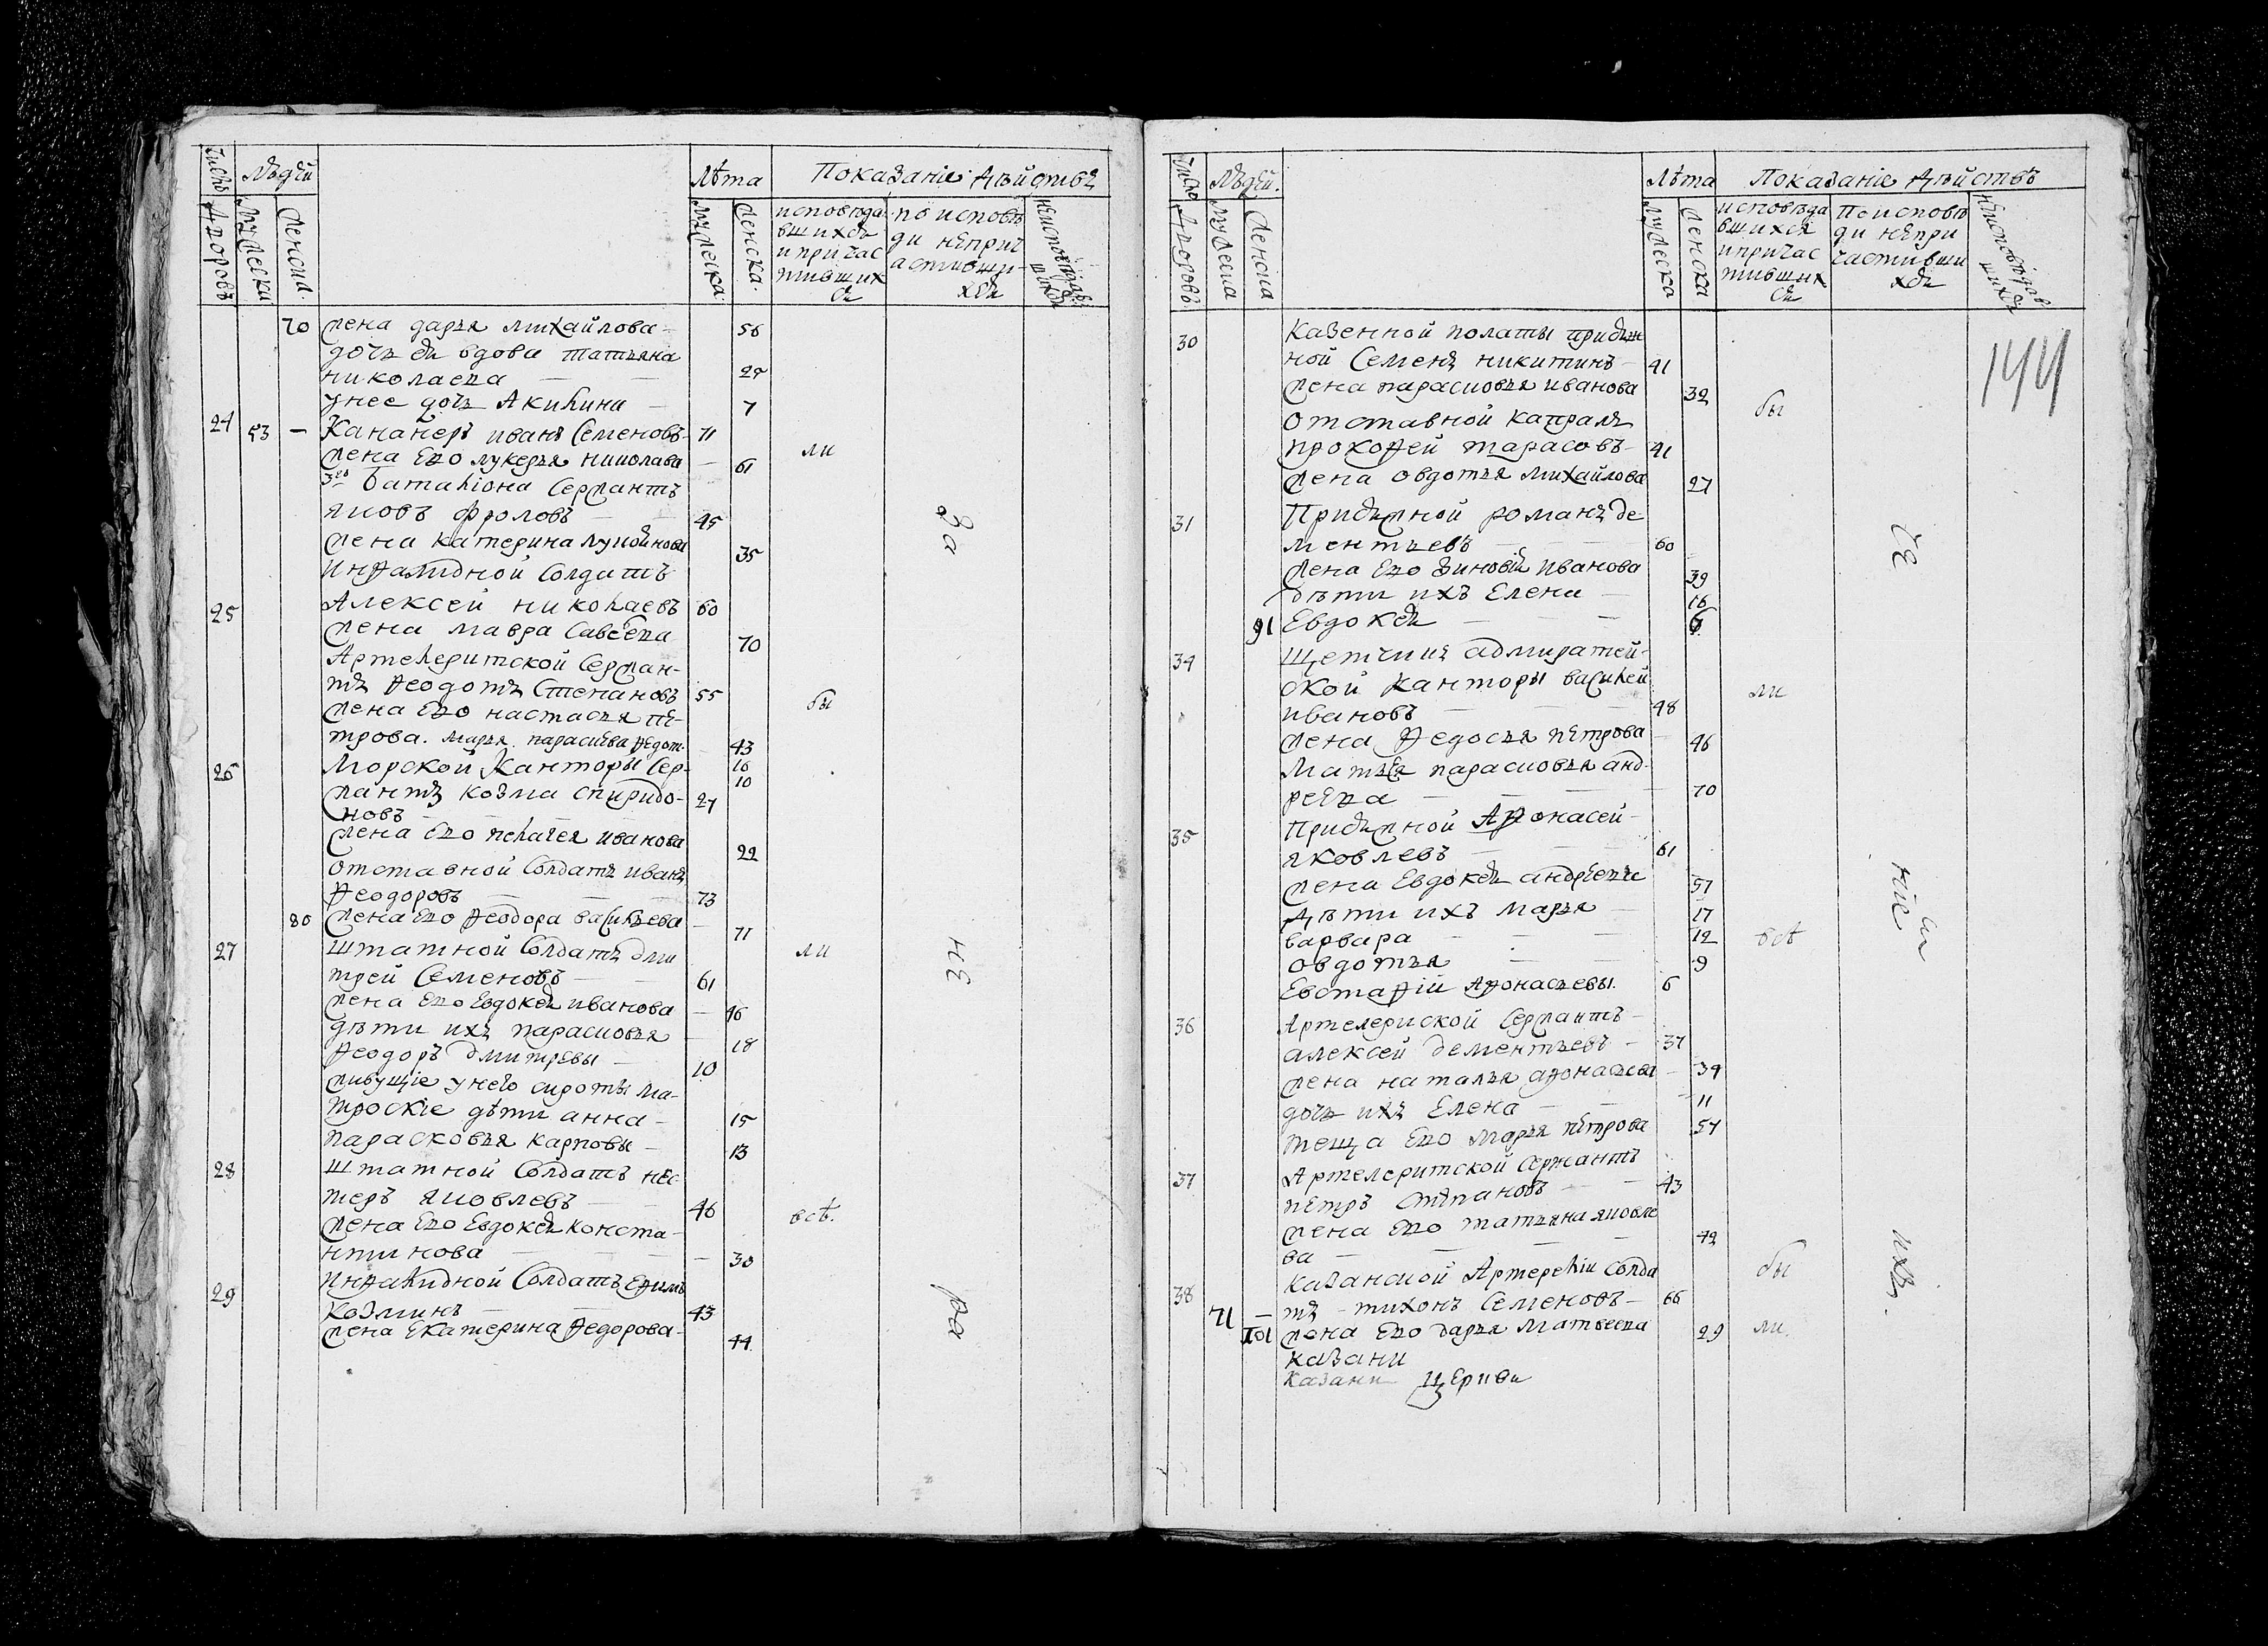 Число дворовъ
Людей
мужеска
женска
Лѣта
мужеска
женска
Показаніе дѣйствъ
исповѣда
вшихся
и причас
тивших
ся
по испове
ди непри
частивши
хся
неисповѣдав
шихся
70 жена дарья михайлова 56
дочь ея вдова татьяна
николаева 29
унее дочь Акилина 7
24 53 – Кананеръ иванъ Семеновъ 71
жена Его лукерья николава 61
3го баталiона Сержантъ
яковъ фроловъ 45
жена катерина
35
инвалидной Солдатъ
25 Алексей николаевъ 60
жена мавра Савеева 70
Артелеритской Сержан-
тъ Ѳеодотъ Степановъ 55
жена Его настасья пе-
трова. Марья. парасковья Ѳедот. 43
26 Морской Канторы Сер- 16
10
жантъ козма спиридо- 27
новъ
жена Его пелагея иванова 22
отставной Солдатъ иванъ
Ѳеодоровъ 73
80 жена Его Ѳеодора васильева 71
27 штатной Солдатъ дми
трей Семеновъ 61
жена Его Евдокея иванова 46
дѣти ихъ парасковья 18
Ѳеодоръ дмитревы 10
живущiе унего сироты ма-
троскiе дѣти анна 15
парасковья карповы 13
28 штатной Солдатъ нес
теръ яковлевъ 46
жена Его Евдокея конста-
нтинова 30
29 инвалидной Солдатъ Ефимъ
козминъ 43
жена Екатерина Ѳедорова 44
бы
ли
всѣ.
за
не
ра
Число дворовъ
Людей.
мужеска
женска
Лѣта
мужеска
женска
Показанiе дѣйствъ
исповѣда
вшихся
и причас
тивших
ся
По исповѣ
ди непри
частивши
хся
неисповѣдав
шихся
144
30 казенной полаты присяж
ной Семенъ никитинъ 41
жена парасковья иванова 32
отставной капралъ
прокофей тарасовъ 41
жена овдотья михайлова 27
31 Присяжной романъ де
ментьевъ 60
жена Его Зиновiя иванова 39
дѣти ихъ Елена 16
91 Евдокея 6
34 щетчикъ адмиратей-
ской канторы василей
ивановъ 48
жена Ѳедосья петрова 46
Мать Ея парасковья анд-
реева 70
35 Присяжной Афонасей
яковлевъ 61
жена Евдокея андреева 57
Дѣти ихъ марья 17
варвара 12
овдотья 9
Евстафiи Афонасьевы. 6
36 Артелериской Сержантъ
алексей дементьевъ 37
жена наталья афонасьева 39
дочь ихъ Елена 11
теща Его марья петрова 57
37 Артелеритской Сержантъ
петръ степановъ 43
жена Его татьяна яковле
ва 42
38 казанской Артерелiи Солда
71 – тъ – тихонъ Семеновъ 66
101 жена Его дарья Матвеева 29
казани
казани церкви
бы
ли
всѣ
бы
ли.
че
нiе
Ея
ихъ.